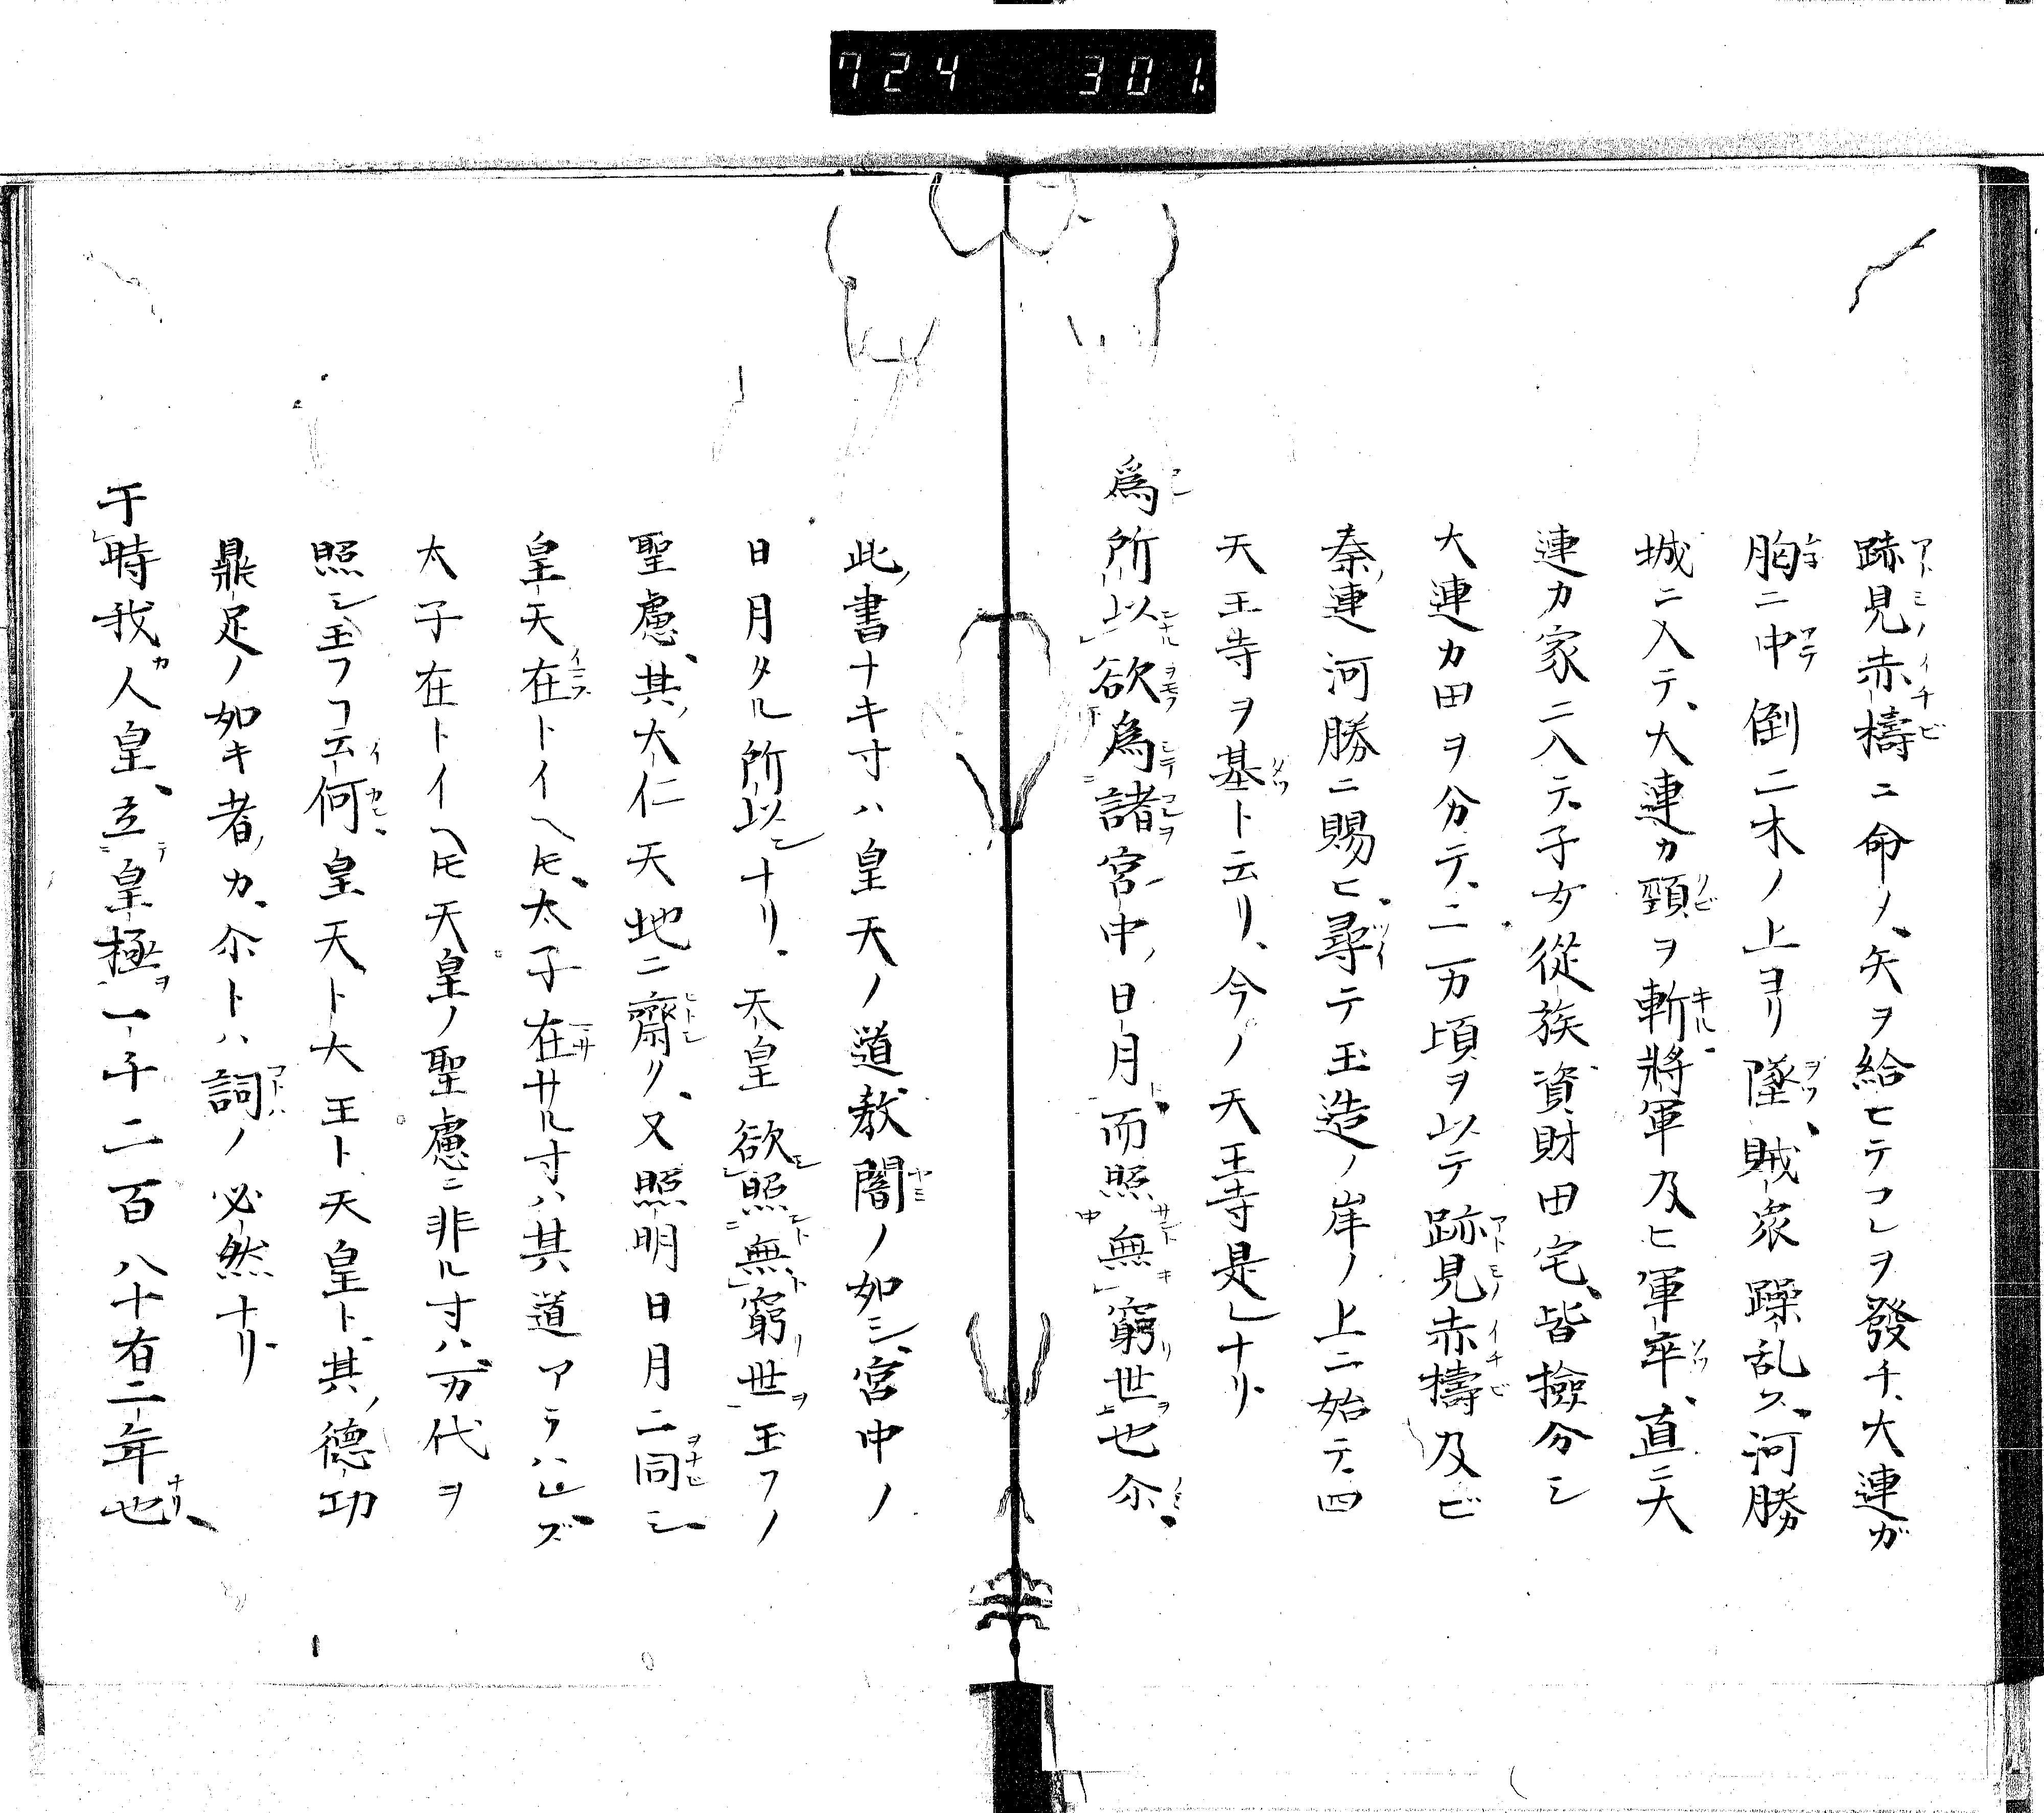 724 301.
跡見赤檮ニ命メ、矢ヲ給ヒテコレヲ發チ、大連ガ
胸ニ中倒ニ木ノ上ヨリ墜、賊衆躁乱ス、河勝
城ニ入テ、大連カ頸ヲ斬、將軍及ヒ軍卒、直ニ大
連カ家ニ入テ、子女從族資財田宅、皆撿分シ
大連カ田ヲ分テ、二万頃ヲ以テ跡見赤檮及ビ
秦連河勝ニ賜ヒ、尋テ玉造ノ岸ノ上ニ始テ、四
天王寺ヲ基ト云リ、今ノ天王寺是ナリ、
爲所以欲爲諸宮中日月而照無窮世也尒、
此書ナキ寸ハ皇天ノ道教闇ノ如シ、宮中ノ
日月タル所以ナリ、天皇欲照無窮世玉フノ
聖慮、其大仁天地ニ齋リ、又照明日月ニ同シ
皇天在トイヘ𪜈、太子在サル寸ハ其道アラハレズ、
太子在トイヘ𪜈天皇ノ聖慮ニ非ル寸ハ、万代ヲ
照シ玉フヿ云何、皇天ト大王ト天皇ト、其德功
鼎足ノ如キ者カ、尒トハ詞ノ必然ナリ、
于時我人皇、立皇極一千二百八十有二年也、